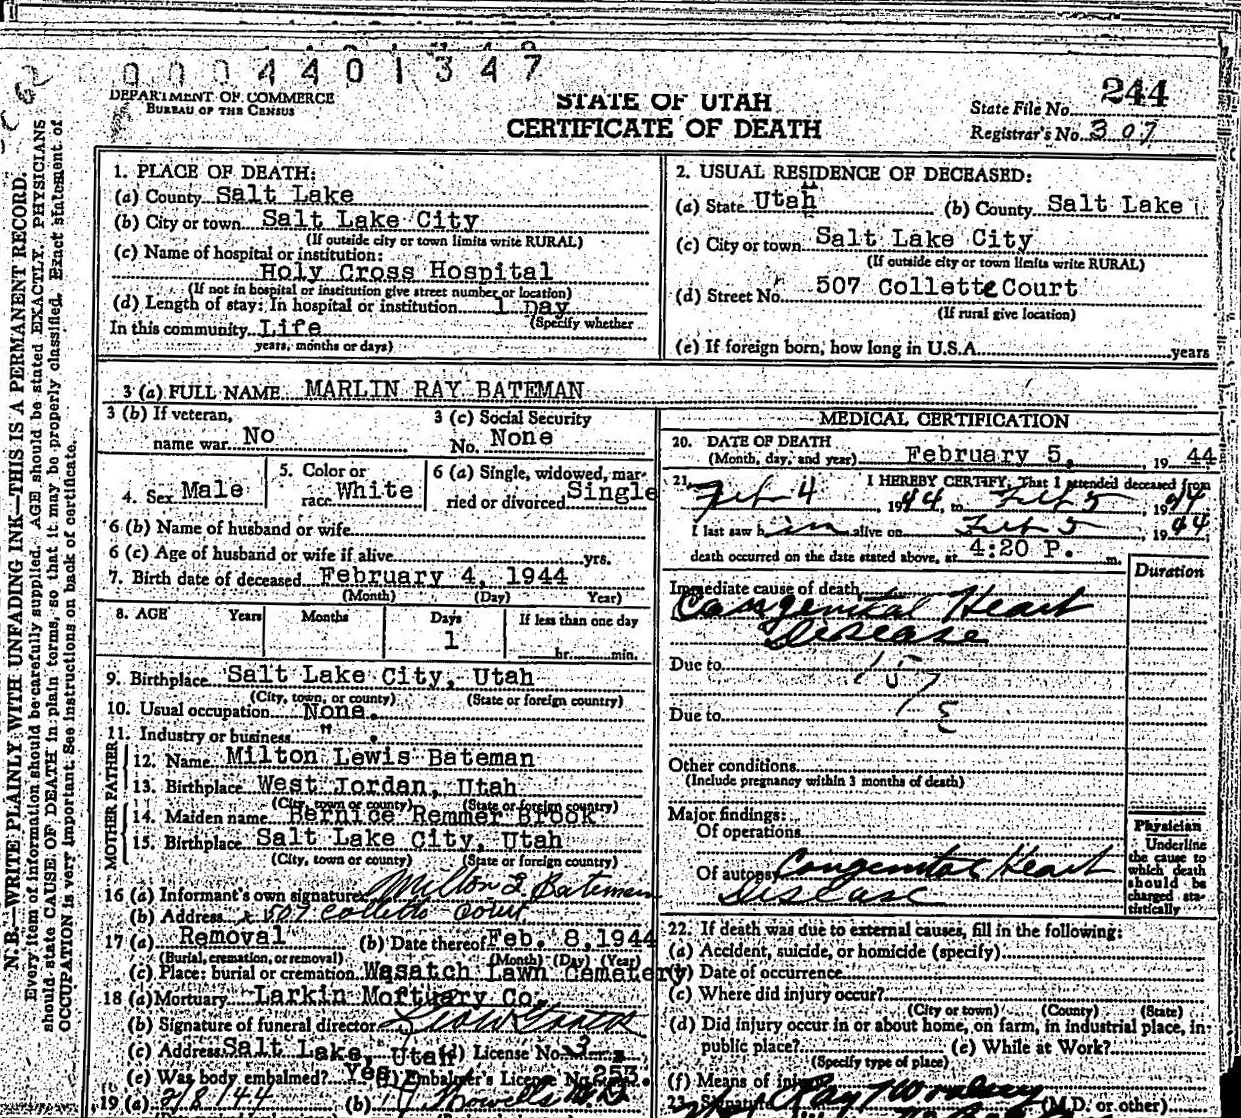 0004401347
DEPARTMENT OF COMMERCE
BUREAU OF THE CENSUS
STATE OF UTAH
CERTIFICATE OF DEATH
State File No. 244
Registrar's No. 307
N. B.—WRITE PLAINLY WITH UNFADING INK—THIS IS A PERMANENT RECORD.
Every item of information should be carefully supplied. AGE should be stated EXACTLY. PHYSICIANS
should state CAUSE OF DEATH in plain terms, so that it may be properly classified. Exact statement of
OCCUPATION is very important. See instructions on back of certificate.
1. PLACE OF DEATH:
(a) County Salt Lake
(b) City or town Salt Lake City
(If outside city or town limits write RURAL)
(c) Name of hospital or institution:
Holy Cross Hospital
(If not in hospital or institution give street number or location)
(d) Length of stay: In hospital or institution 1 Day
(Specify whether
In this community Life
years, months or days)
2. USUAL RESIDENCE OF DECEASED:
(a) State Utah (b) County Salt Lake
(c) City or town Salt Lake City
(If outside city or town limits write RURAL)
(d) Street No. 507 Collette Court
(If rural give location)
(e) If foreign born, how long in U.S.A. years
3 (a) FULL NAME MARLIN RAY BATEMAN
3 (b) If veteran, 3 (c) Social Security
name war No No. None
4. Sex Male 5. Color or race White 6 (a) Single, widowed, married or divorced Single
6 (b) Name of husband or wife
6 (c) Age of husband or wife if alive yrs.
7. Birth date of deceased February 4, 1944
(Month) (Day) Year)
8. AGE Years Months Days If less than one day
1 hr. min.
9. Birthplace Salt Lake City, Utah
(City, town, or county) (State or foreign country)
10. Usual occupation None.
11. Industry or business " .
FATHER
12. Name Milton Lewis Bateman
13. Birthplace West Jordan, Utah
(City, town or county) (State or foreign country)
MOTHER
14. Maiden name Bernice Remmer Brook
15. Birthplace Salt Lake City, Utah
(City, town or county) (State or foreign country)
16 (a) Informant's own signature Milton L Bateman
(b) Address 507 Collette Court
17 (a) Removal (b) Date thereof Feb. 8, 1944
(Burial, cremation, or removal) (Month) (Day) (Year)
(c) Place: burial or cremation Wasatch Lawn Cemetery
18 (a) Mortuary Larkin Mortuary Co.
(b) Signature of funeral director
(c) Address Salt Lake, Utah (d) License No. 3
(e) Was body embalmed? Yes (f) Embalmer's License No. 253.
19 (a) 2/8/44 (b)
MEDICAL CERTIFICATION
20. DATE OF DEATH
(Month, day, and year) February 5, 19 44
21. I HEREBY CERTIFY, That I attended deceased from
Feb 4, 1944, to Feb 5, 1944
I last saw him alive on Feb 5, 1944,
death occurred on the date stated above, at 4:20 P. m.
Duration
Immediate cause of death
Congenital Heart
Disease
Due to 157
Due to E
Other conditions
(Include pregnancy within 3 months of death)
Major findings:
Of operations
Of autopsy Congenital Heart
Disease
Physician
Underline
the cause to
which death
should be
charged sta-
tistically
22. If death was due to external causes, fill in the following:
(a) Accident, suicide, or homicide (specify)
(b) Date of occurrence
(c) Where did injury occur?
(City or town) (County) (State)
(d) Did injury occur in or about home, on farm, in industrial place, in
public place? (e) While at Work?
(Specify type of place)
(f) Means of injury
23. Signature Ray (M.D. or other)